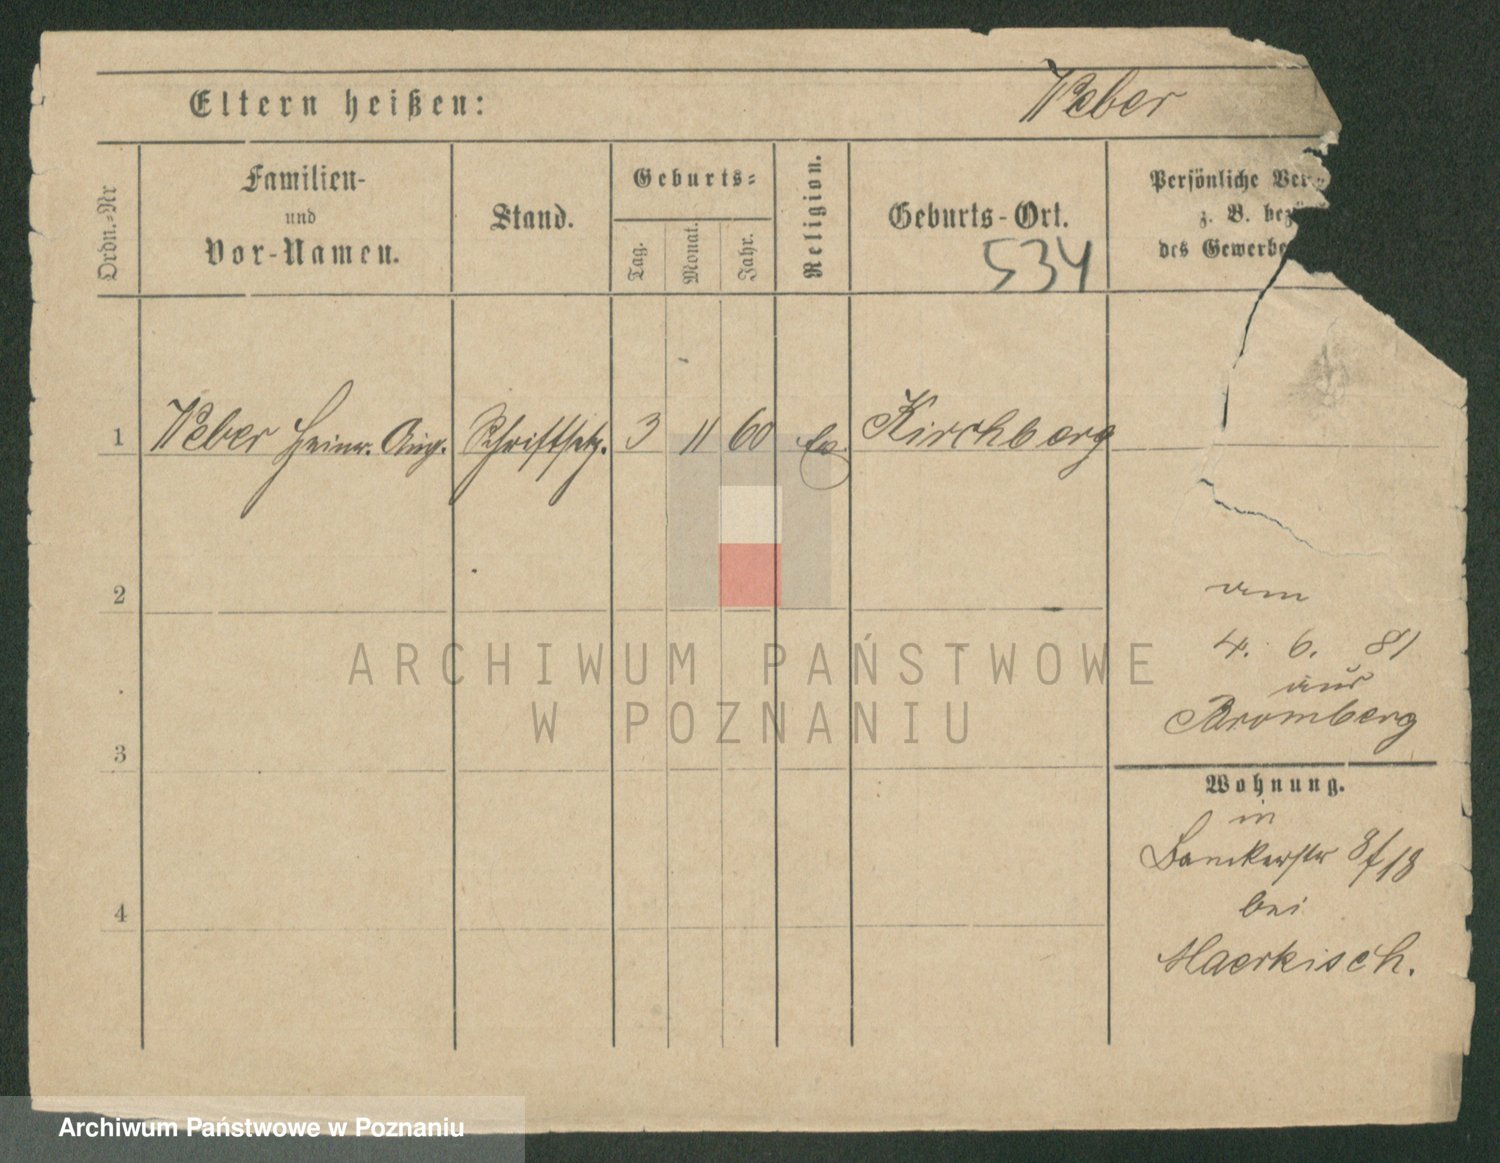 Eltern heißen:
Weber
Ordn.-Nr
Familien-
und
Vor-Namen.
Stand.
Geburts-
Tag.
Monat.
Jahr.
Religion.
Geburts-Ort.
534
Persönliche Ver
z. B. bez
des Gewerbe
1 Weber Heinr. Aug. Schriftsetz. 3 11 60 ev. Kirchberg
2
am
4. 6. 81
aus
Bromberg
3
Wohnung.
in
8/18
4
bei
Maerkisch.
ARCHIWUM PAŃSTWOWE
W POZNANIU
Archiwum Państwowe w Poznaniu